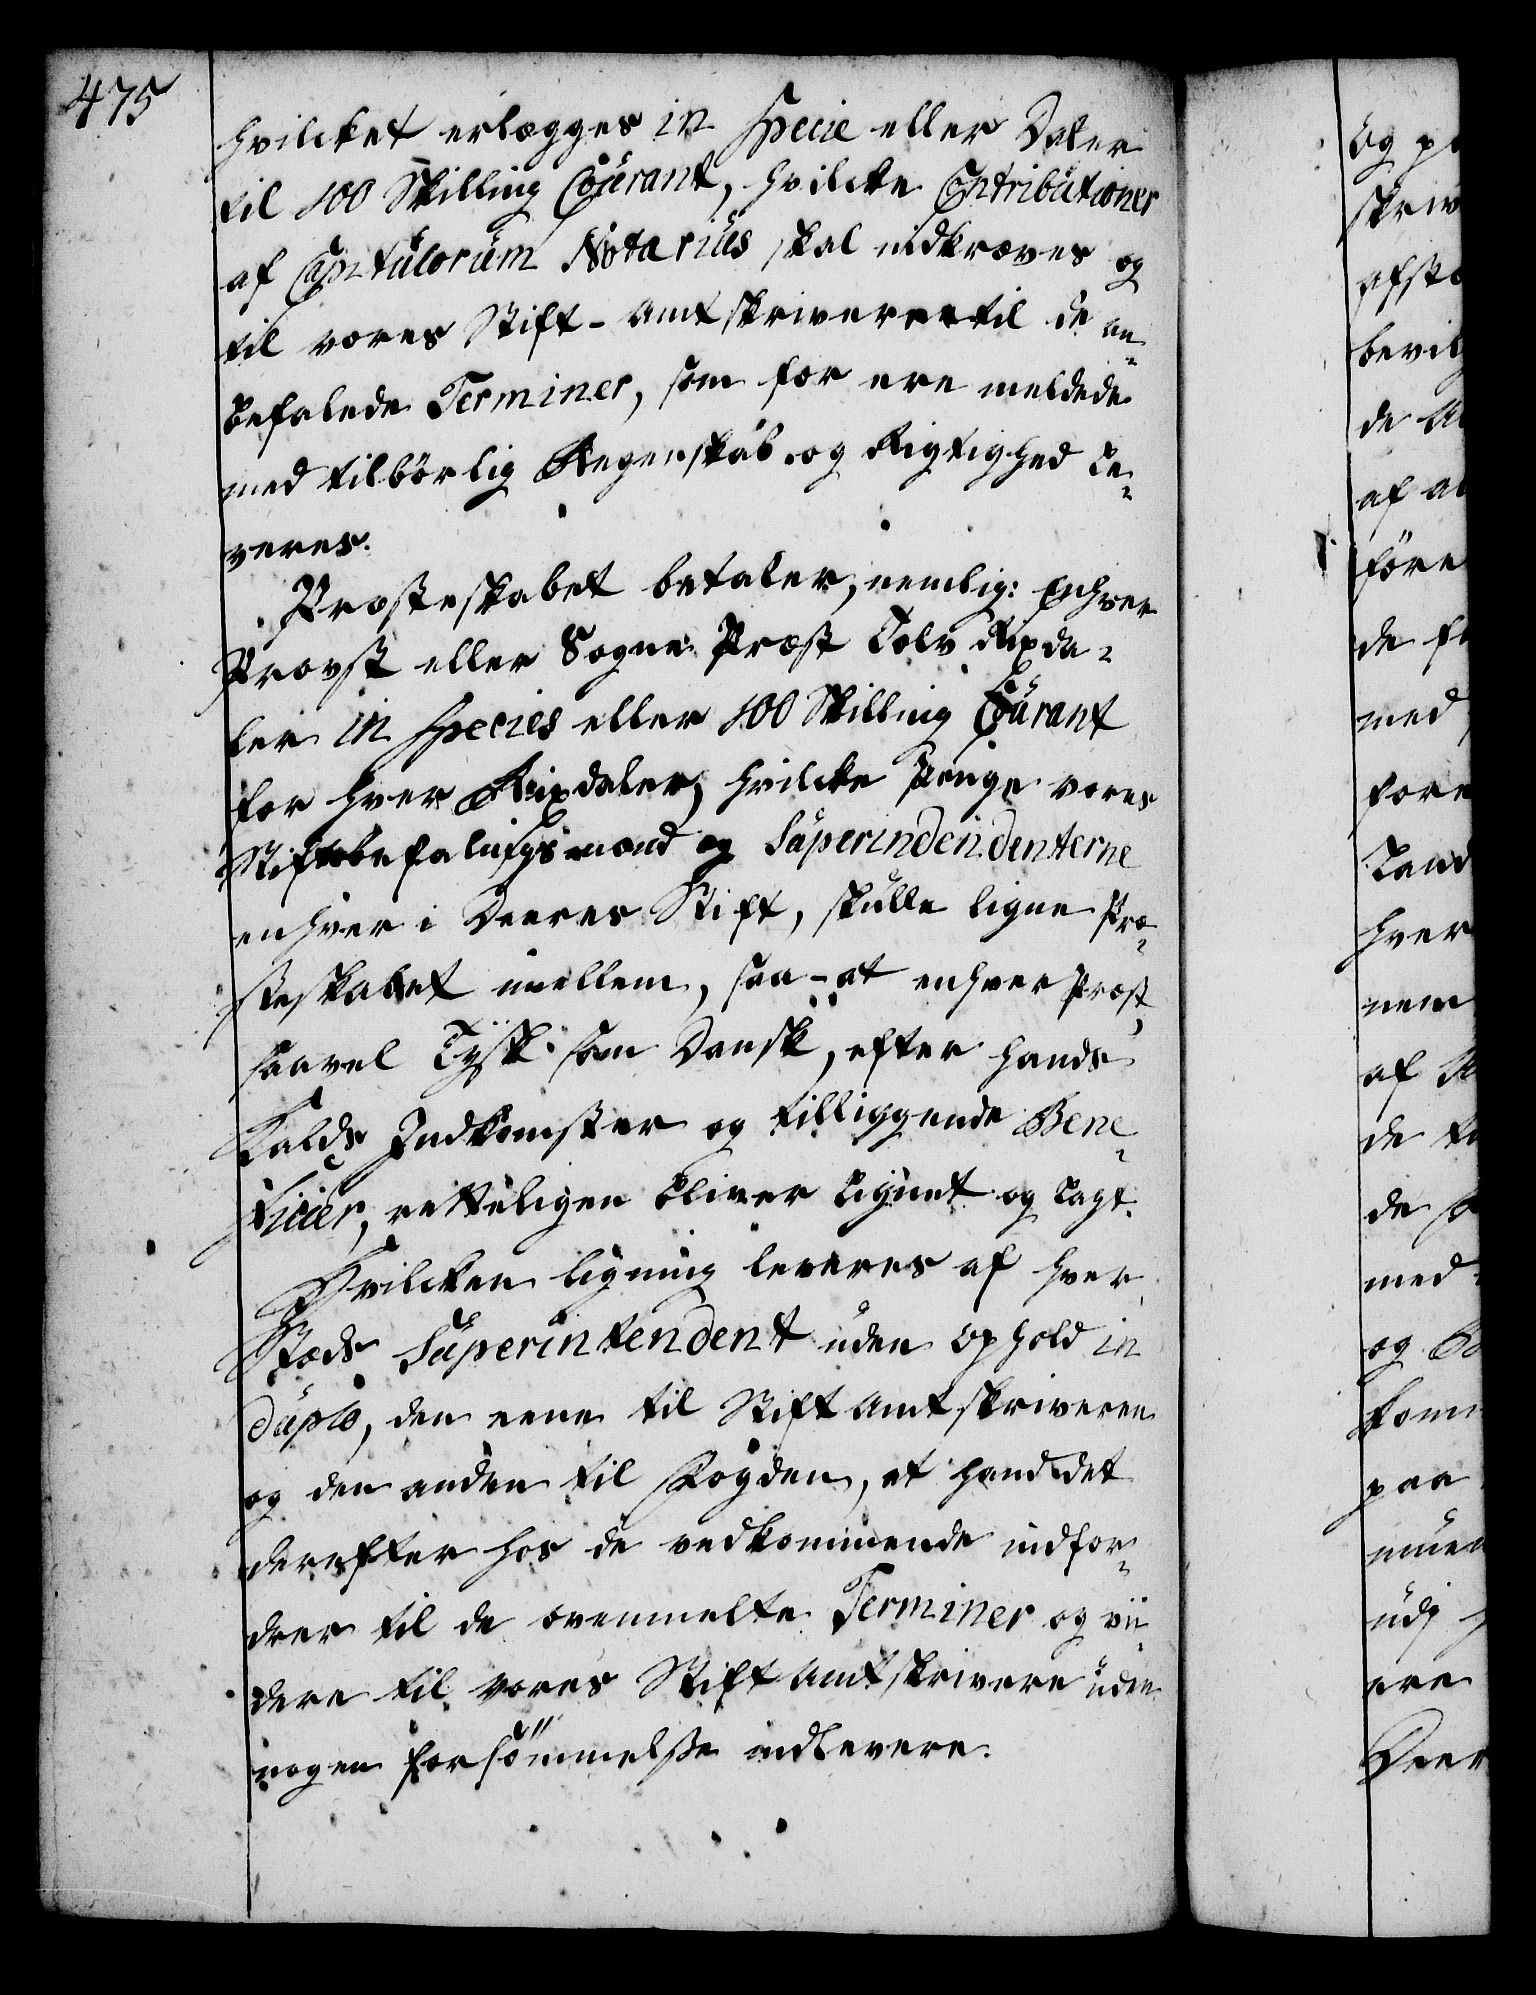 475
hvilcket erlægges in Specie eller Daler
til 100 Skilling Courant, hvilcke Contributioner
af Capitulorum Notarius skal indkræves og
til vores Stift-Amtskrivere til de an-
befalede Terminer, som før ere meldede
med tilbörlig Regenskab og Rigtighed le-
veres.
Præsteskabet betaler, nemlig: Enhver
Provst eller Sogne Præst Tolv Rixda-
ler in Species eller 100 Skilling Courant
for hver Rixdaler, hvilcke Penge vores
Stiftsbefalingsmænd og Superindendenterne
enhver i Deeres Stift, skulle ligne Præ-
steskabet imellem, saa-at enhver Præst
saavel Tysk som Dansk, efter hands
Kalds Indkomster og tilliggende Bene-
ficier, retteligen bliver lignet og lagt.
Hvilcken ligning leveres af hver
Stæds Superintendent uden Ophold in
duplo, den eene til Stift Amtskriveren
og den anden til Fogden, at hand det
derefter hos de vedkommende indfor-
drer til de ovenmelte Terminer og vii-
dere til vores Stift Amtskrivere uden
nogen forsömmelse indlevere.
og p
skriv
afst
bevil
de A
af al
före
de f
med
fore
Land
hver
nem
af A
de
de
med
og
kom
paa
udj
ere
Deer